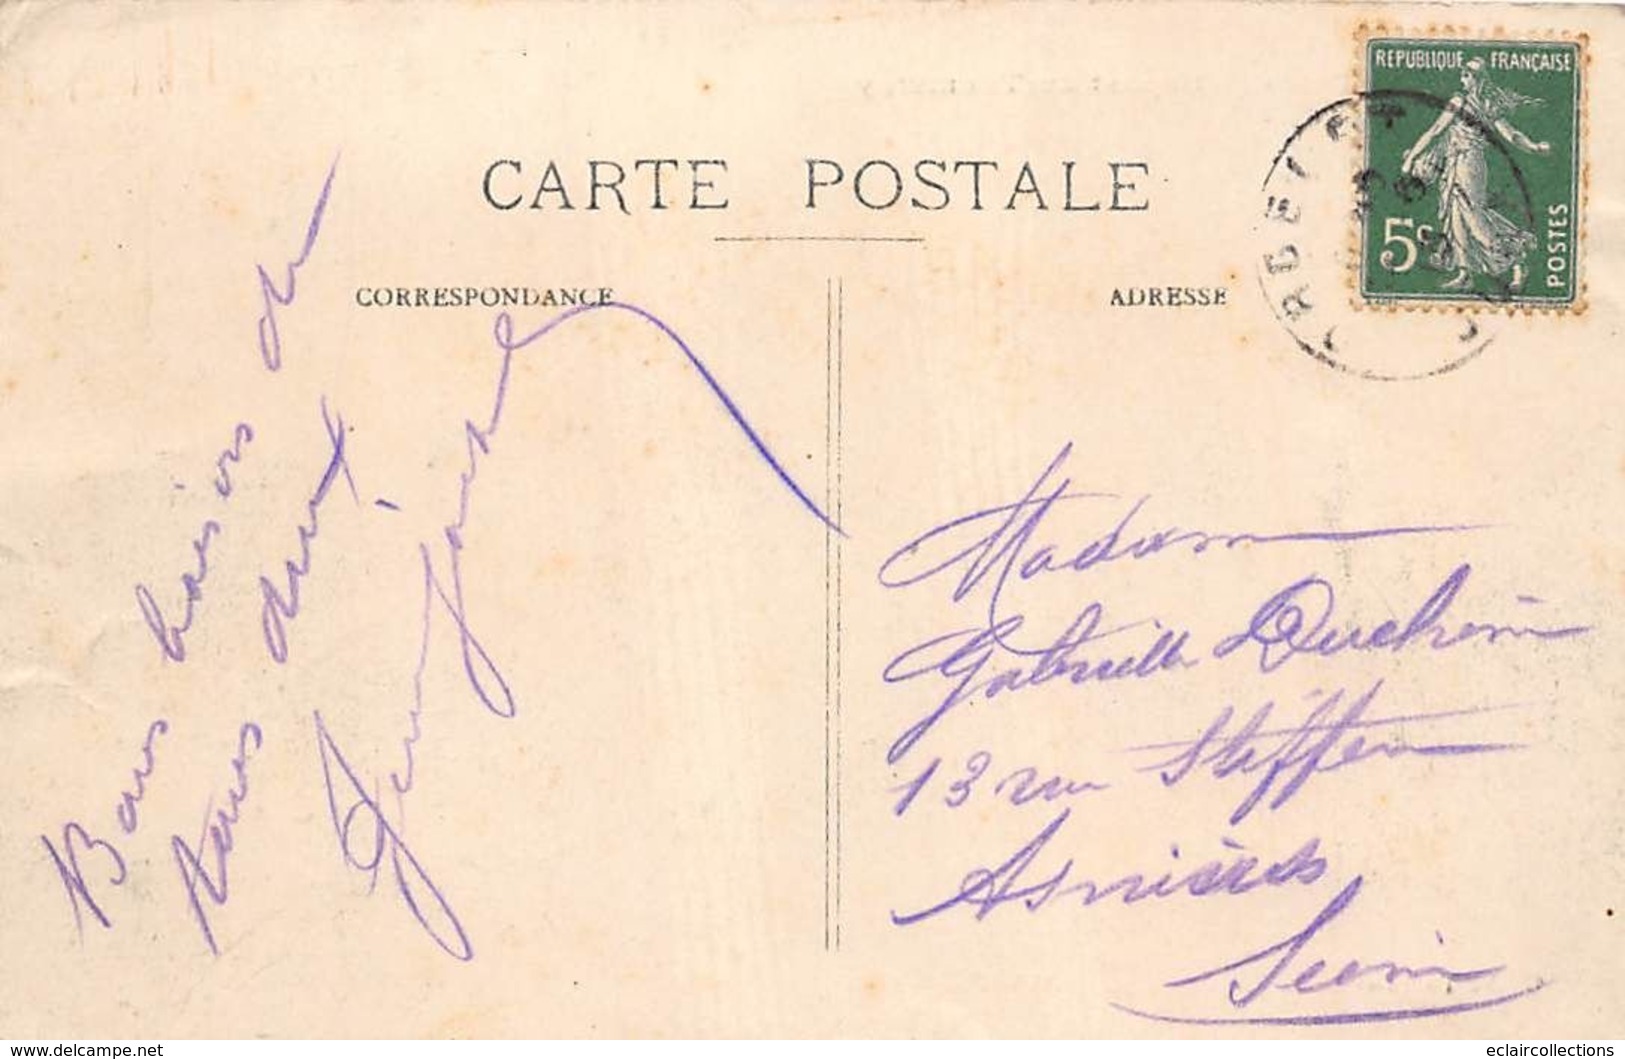 REPUBLIQUE FRANÇAISE
5c
POSTES
CARTE POSTALE
CORRESPONDANCE
ADRESSE
Bons baisers de
nous deux
Madame
Gabrielle Duchêne
13 rue Steffen
Asnières
Seine
www.delcampe.net
eclaircollections